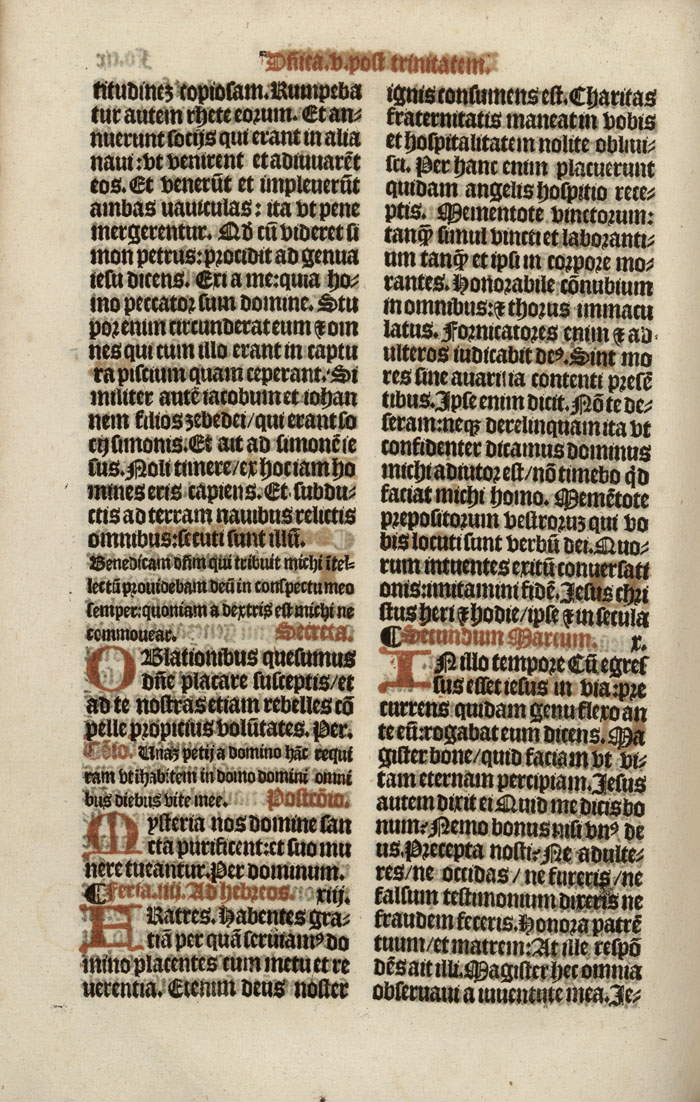 Dñica.v.post trinitatem.
titudinez copiosam. Rumpeba
tur autem rhete eorum. Et an⸗
nuerunt socijs qui erant in alia
naui: vt venirent et adiuuarēt
eos. Et venerūt et impleuerūt
ambas nauiculas: ita vt pene
mergerentur. Qd cū videret si
mon petrus: procidit ad genua
iesu dicens. Exi a me: quia ho⸗
mo peccator sum domine. Stu
por enim circunderat eum ⁊ om
nes qui cum illo erant in captu
ra piscium quam ceperant. Si
militer autē iacobum et iohan
nem filios zebedei/qui erant so
cij simonis. Et ait ad simonē ie
sus. Noli timere/ex hoc iam ho
mines eris capiens. Et subdu⸗
ctis ad terram nauibus relictis
omnibus: secuti sunt illū.
Benedicam dñm qui tribuit michi ītel⸗
lectū prouidebam deū in conspectu meo
semper: quoniam a dextris est michi ne
commouear. Secreta.
OBlationibus quesumus
dñe placare susceptis/et
ad te nostras etiam rebelles cō
pelle propitius volūtates. Per.
Cōio. Unaz petij a domino hāc requi
ram vt ihabitem in domo domini omni
bus diebus vite mee. Postcōio.
Mysteria nos domine san
cta purificent: et suo mu
nere tueantur. Per dominum.
¶ Feria.iiij. Ad hebreos. xiij.
FRatres. Habentes gra⸗
tiā per quā seruiamꝰ do
mino placentes cum metu et re
uerentia. Etenim deus noster
ignis consumens est. Charitas
fraternitatis maneat in vobis
et hospitalitatem nolite obliui⸗
sci. Per hanc enim placuerunt
quidam angelis hospitio rece⸗
ptis. Mementote vinctorum:
tanq̄ simul vincti et laboranti⸗
um tanq̄ et ipsi in corpore mo⸗
rantes. Honorabile cōnubium
in omnibus: ⁊ thorus immacu
latus. Fornicatores enim ⁊ ad⸗
ulteros iudicabit deꝰ. Sint mo
res sine auaritia contenti presē
tibus. Ipse enim dicit. Nō te de⸗
seram: neqꝫ derelinquam ita vt
confidenter dicamus dominus
michi adiutor est/nō timebo qd
faciat michi homo. Memētote
prepositorum vestroruz qui vo
bis locuti sunt verbū dei. Quo⸗
rum intuentes exitū conuersati
onis: imitamini fidē. Jesus chri
stus heri ⁊ hodie/ipse ⁊ in secula
¶ Secundum Marcum. x.
IN illo tempore Cū egres
sus esset iesus in via: pre
currens quidam genu flexo an
te eū: rogabat eum dicens. Ma
gister bone/quid faciam vt vi⸗
tam eternam percipiam. Jesus
autem dixit ei Quid me dicis bo
num: Nemo bonus nisi vnꝰ de
us. Precepta nosti: Ne adulte⸗
res/ne occidas/ne fureris/ne
falsum testimonium dixeris ne
fraudem feceris. Honora patrē
tuum/et matrem: At ille respō
dēs ait illi. Magister hec omnia
obseruaui a iuuentute mea. Je⸗